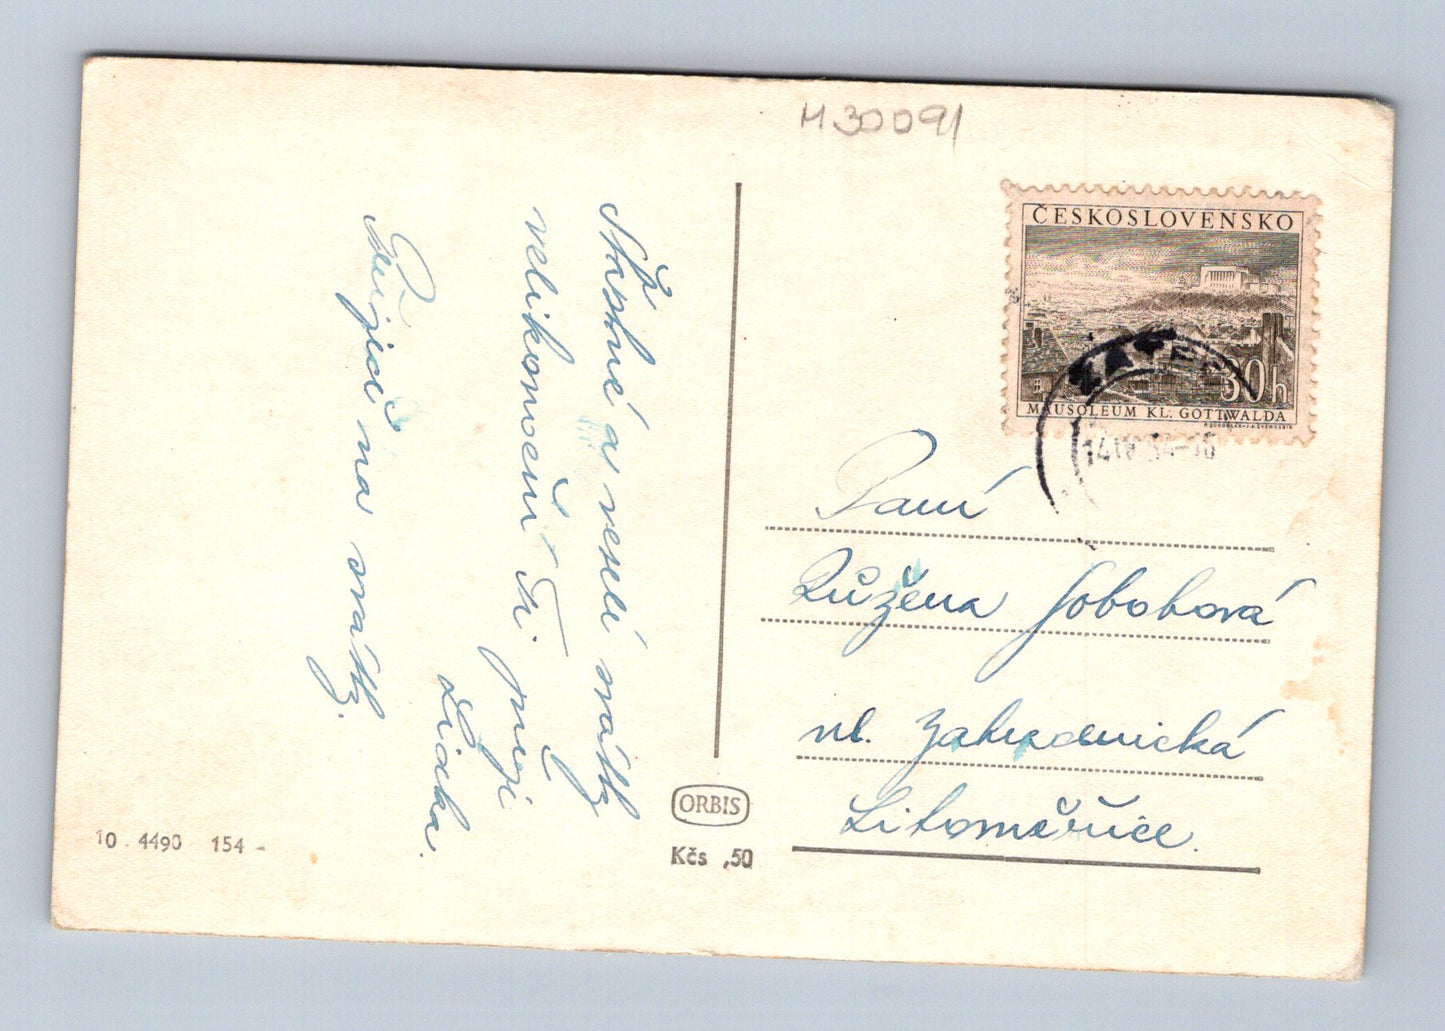 M30091
ČESKOSLOVENSKO
30h
MAUSOLEUM KL. GOTTWALDA
ŽATEC
14.IV.54-
Šťastné a veselé svátky
velikonoční Ti přejí
Lidka.
Přijeď na svátky.
Paní
Růžena Sobotová
ul. Zahradnická
Litoměřice.
ORBIS
Kčs ,50
10. 4490 154 -